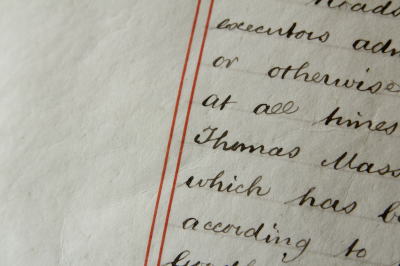 executors adm
or otherwise
at all times
Thomas Mass
which has b
according to